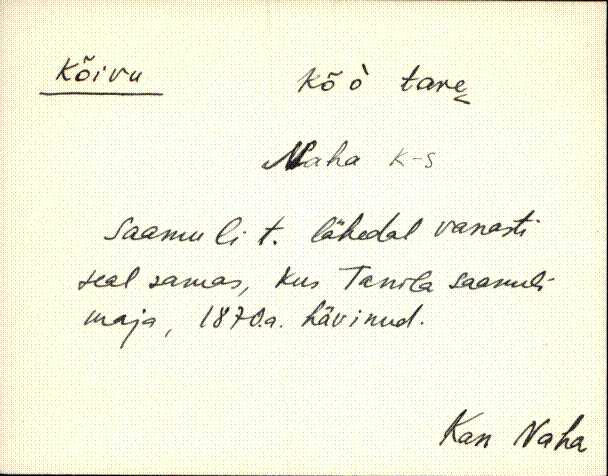 Kõivu
Kõò tare
Naha K-s
Saamuli t. lähedal vanasti
seal samas, kus Tanila Saamuli
maja, 1870.a. hävinud.
Kan Naha